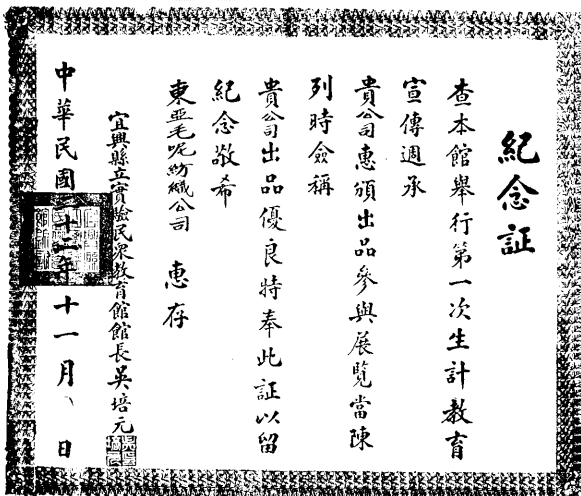 紀念証
查本館舉行第一次生計教育
宣傳週承
貴公司惠頒出品參與展覽當陳
列時僉稱
貴公司出品優良特奉此証以留
紀念敬希
東亞毛呢紡織公司 惠存
宜興縣立實驗民眾教育館館長吳培元
中華民國二十二年十一月 日